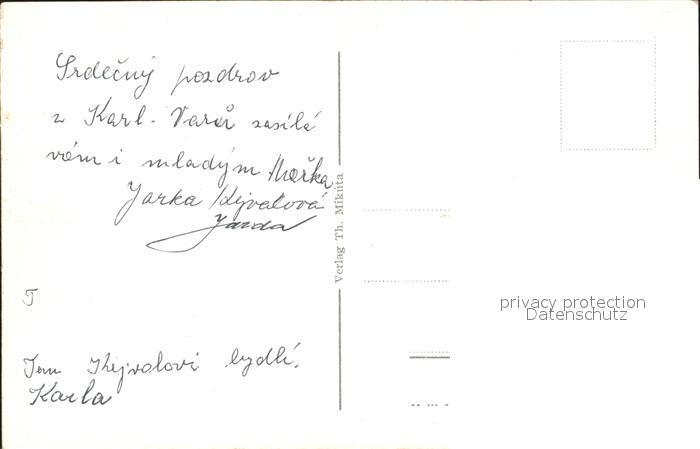 Srdečný pozdrov
z Karl. Varů zasílá
vám i mladým Mařka
Jarka Kejvalová
Jarda
Verlag Th. Mikuta
T
Tam Kejvalovi bydlí.
Karla
privacy protection
Datenschutz